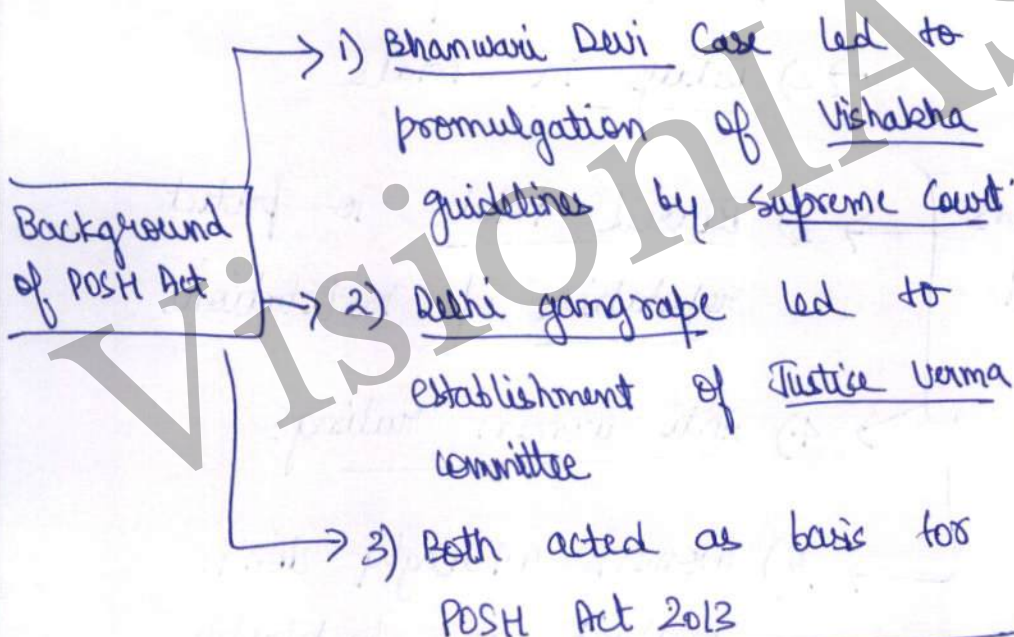 Background
of POSH Act
→ 1) Bhanwari Devi Case led to
promulgation of Vishakha
guidelines by Supreme Court
→ 2) Delhi gangrape led to
establishment of Justice Verma
committee
→ 3) Both acted as basis for
POSH Act 2013
VisionIAS